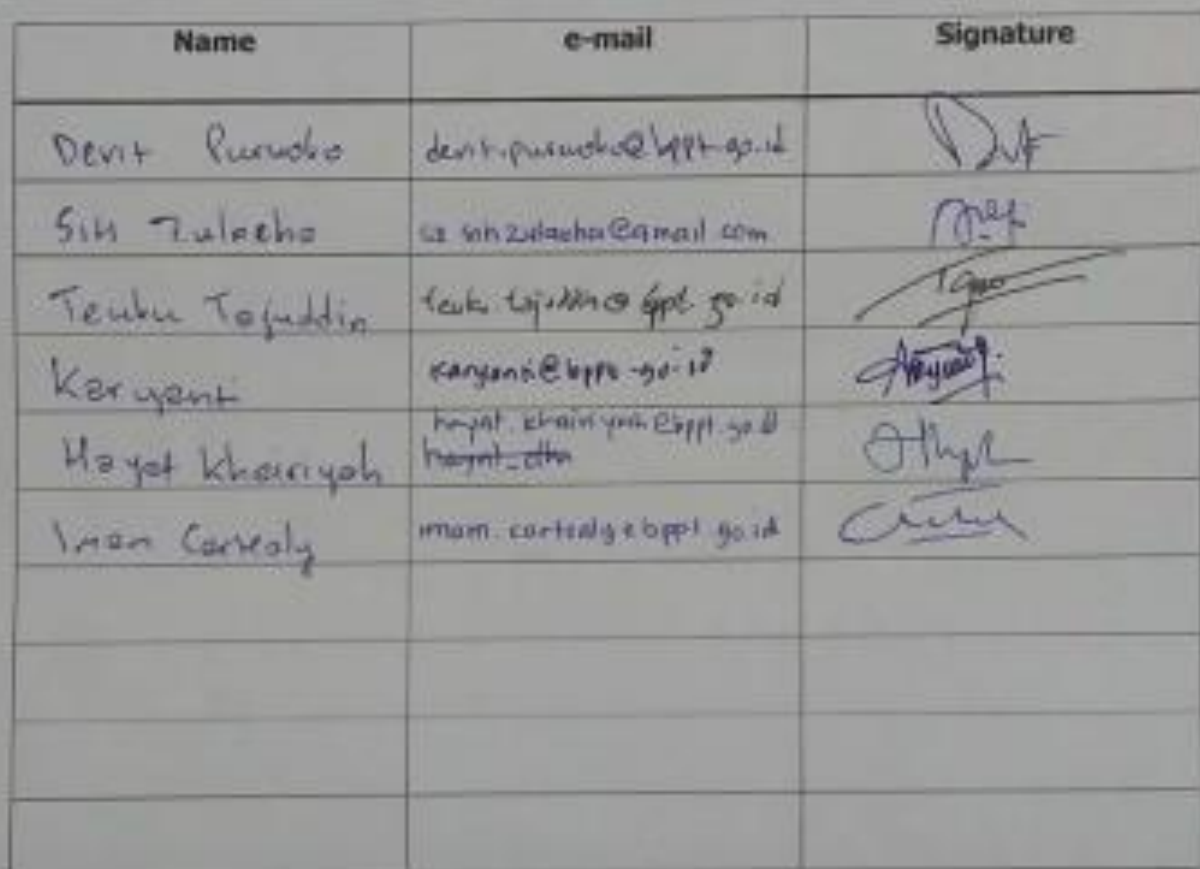 Name e-mail Signature
Devit Purwoko devit.purwoko@bppt.go.id
Siti Zulaeha sitizulaeha@gmail.com
Teuku Tajuddin teuku.tajuddin@bppt.go.id
Karyanti karyanti@bppt.go.id
hayat.khairiyah@bppt.go.id
Hayat Khairiyah
Imam Cartealy imam.cartealy@bppt.go.id